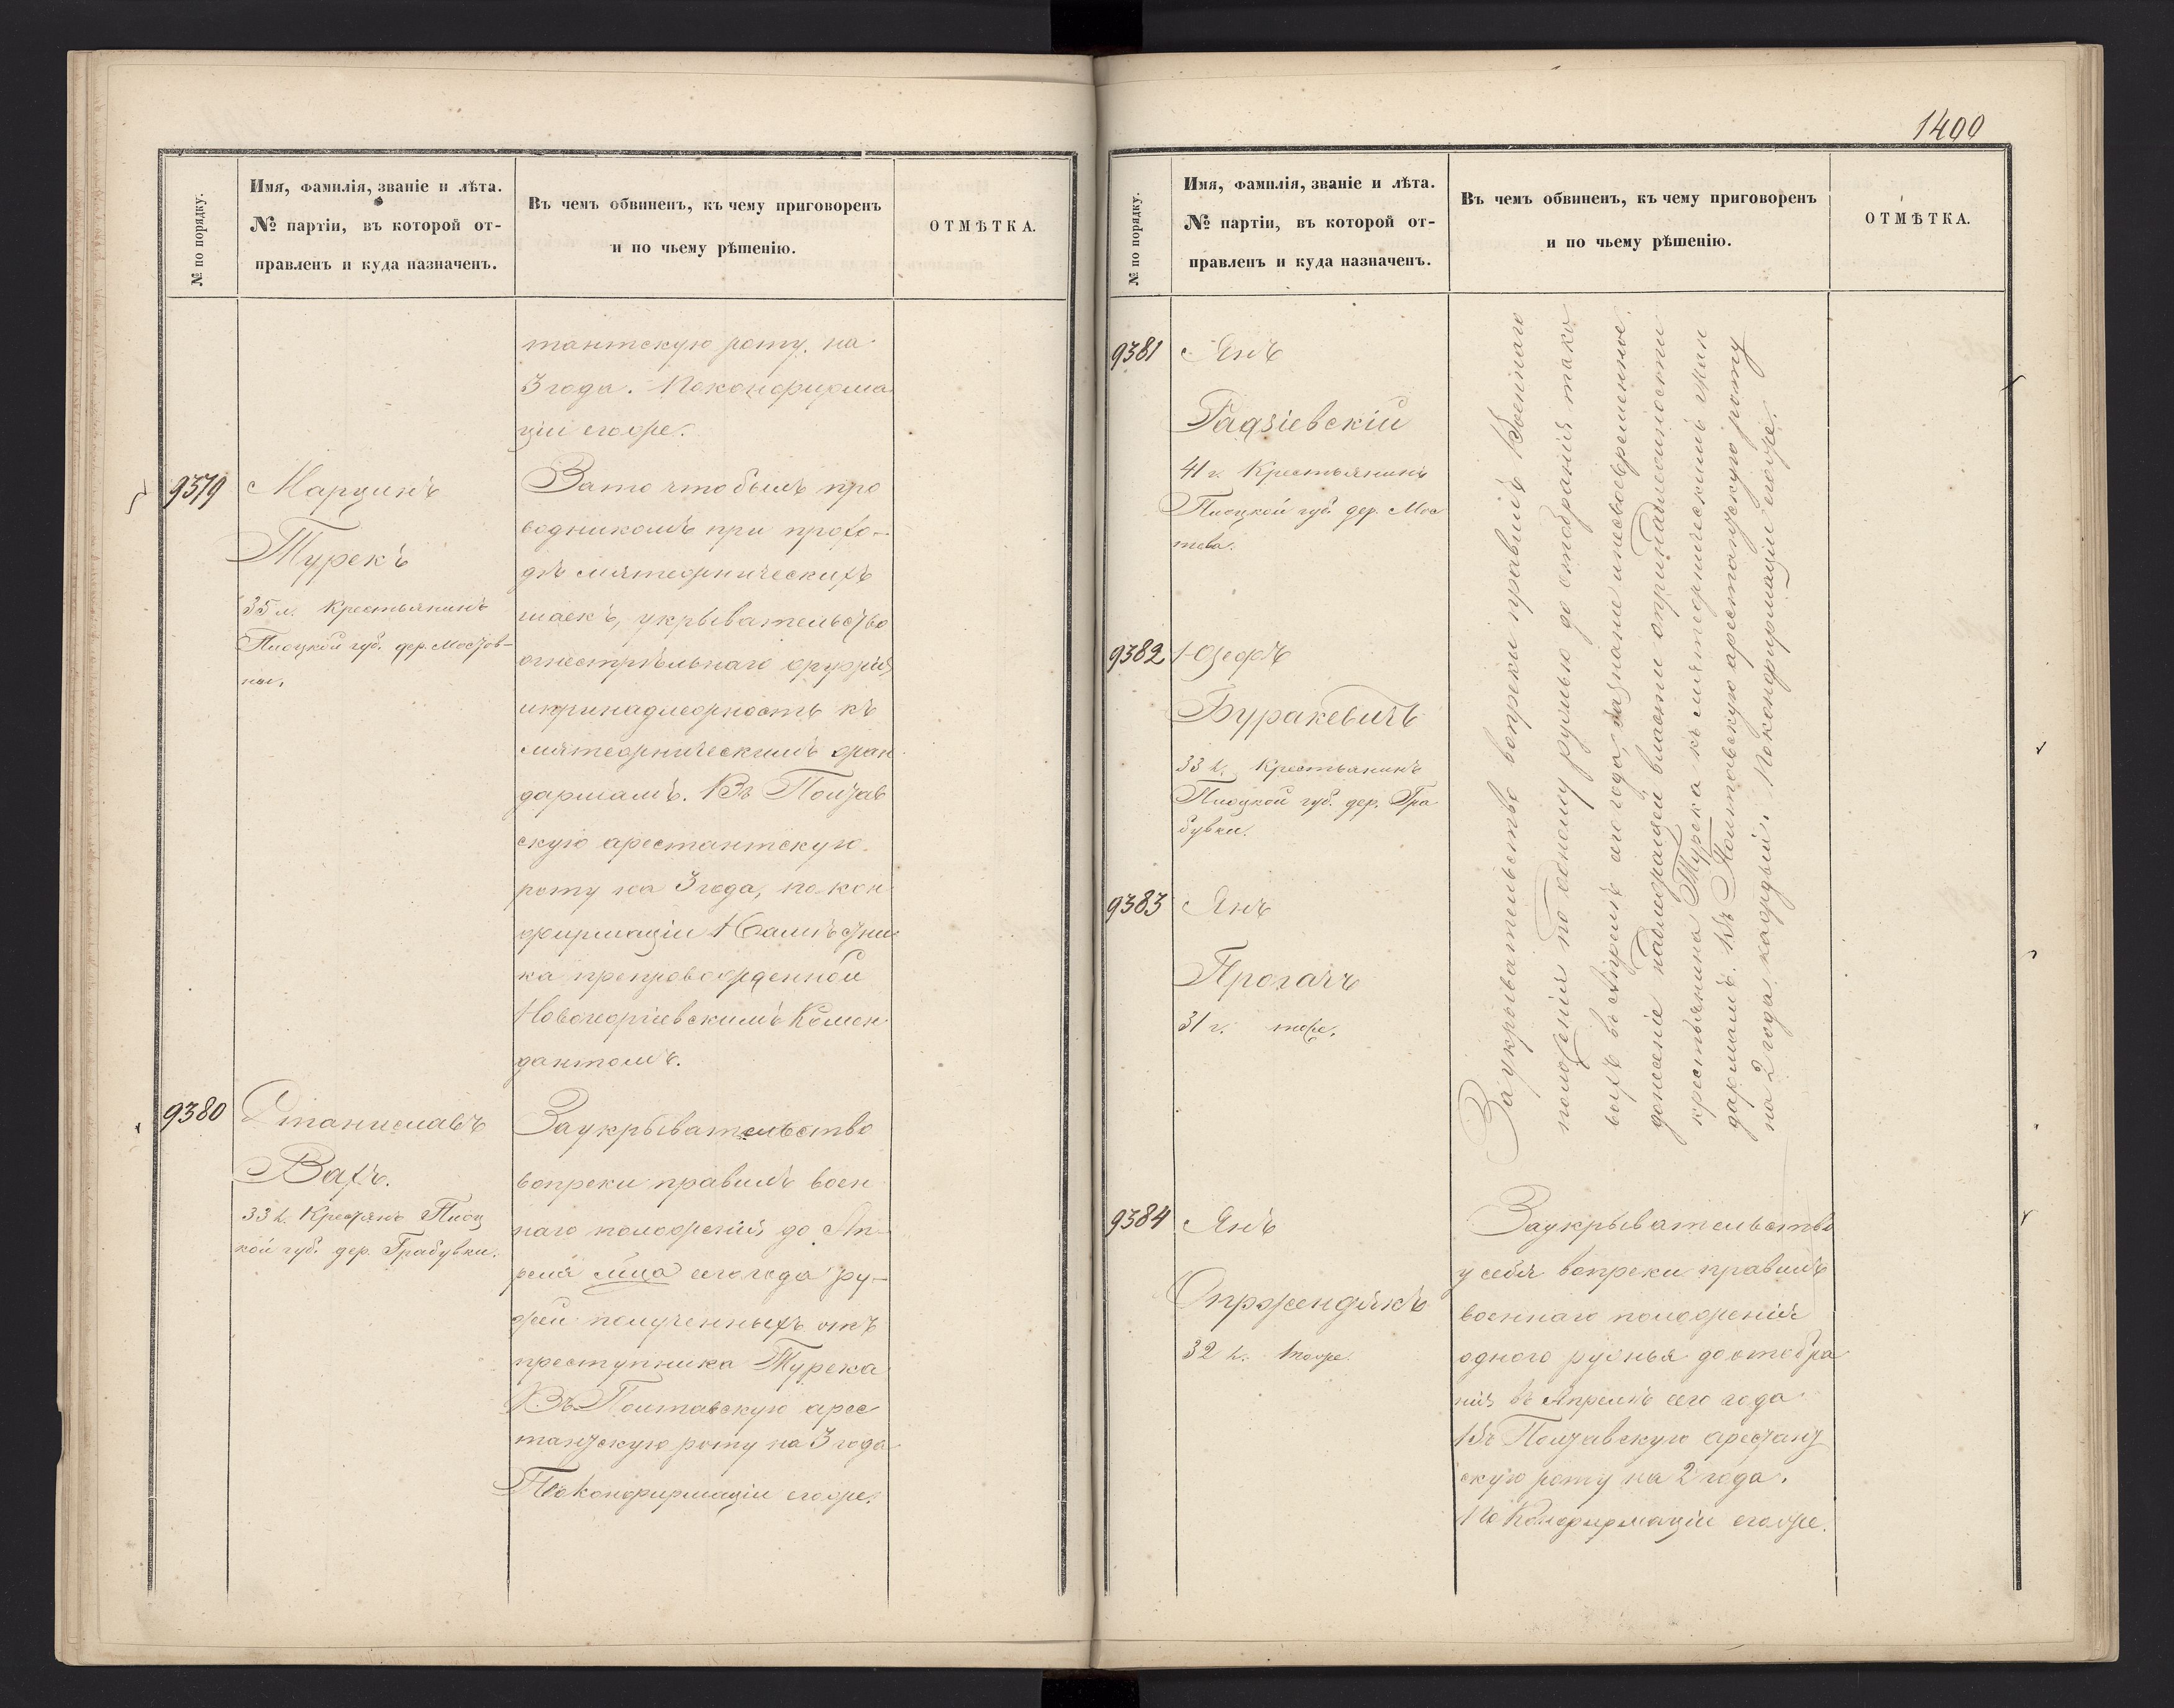 № по порядку.
Имя, фамилія, званіе и лѣта.
№ партіи, въ которой от-
правленъ и куда назначенъ.
Въ чемъ обвиненъ, къ чему приговоренъ
и по чьему рѣшенію.
ОТМѢТКА.
тантскую роту, на
3 года. По конфирма
ціи егоже.
9379
Марцинъ
Турекъ
35 л. Крестьянинъ
Плоцкой губ. дер. Мостов-
ны.
За то что былъ про
водникомъ при прохо-
дѣ мятежническихъ
шаекъ, укрывательство
огнестрѣльнаго оружія
и принадлежность къ
мятежническимъ жан
дармамъ. Въ Полтав
скую арестантскую
роту на 3 года, по кон
фирмаціи Намѣстни
ка препровожденной
Новогеоргіевскимъ Комен
дантомъ.
9380
Станиславъ
Вахъ.
33 л. Крестьянъ Плоц
кой губ. дер. Грабувки.
За укрывательство
вопреки правилъ воен
наго положенія до Ап-
рѣля м-ца сего года ру-
жей полученныхъ отъ
преступника Турека
Въ Полтавскую арес
тантскую роту на 3 года
По конфирмаціи егоже.
1400
№ по порядку.
Имя, фамилія, званіе и лѣта.
№ партіи, въ которой от-
правленъ и куда назначенъ.
Въ чемъ обвиненъ, къ чему приговоренъ
и по чьему рѣшенію.
ОТМѢТКА.
9381
Янъ
Радзіевскій
41 г. Крестьянинъ
Плоцкой губ. дер. Мос
това.
9382
Юзефъ
Буракевичъ
33 л. Крестьянинъ
Плоцкой губ. дер. Гра
бувки.
9383
Янъ
Прогачъ
31 г. тоже.
За укрывательство вопреки правилъ Военнаго
положенія по одному ружью до отобранія тако
выхъ въ Апрелѣ сего года, за знаніе и несвоевременное
донесеніе надлежащей власти о принадлежности
крестьянина Турека къ мятежническимъ жан
дармамъ. Въ Полтавскую арестантскую роту
на 2 года каждый. По конфирмаціи егоже.
9384
Янъ
Опржендэкъ
32 л. тоже.
За укрывательство
у себя вопреки правилъ
военнаго положенія
одного ружья до отобра
нія въ Апрелѣ сего года
Въ Полтавскую арестант
скую роту на 2 года.
По Конфирмаціи егоже.